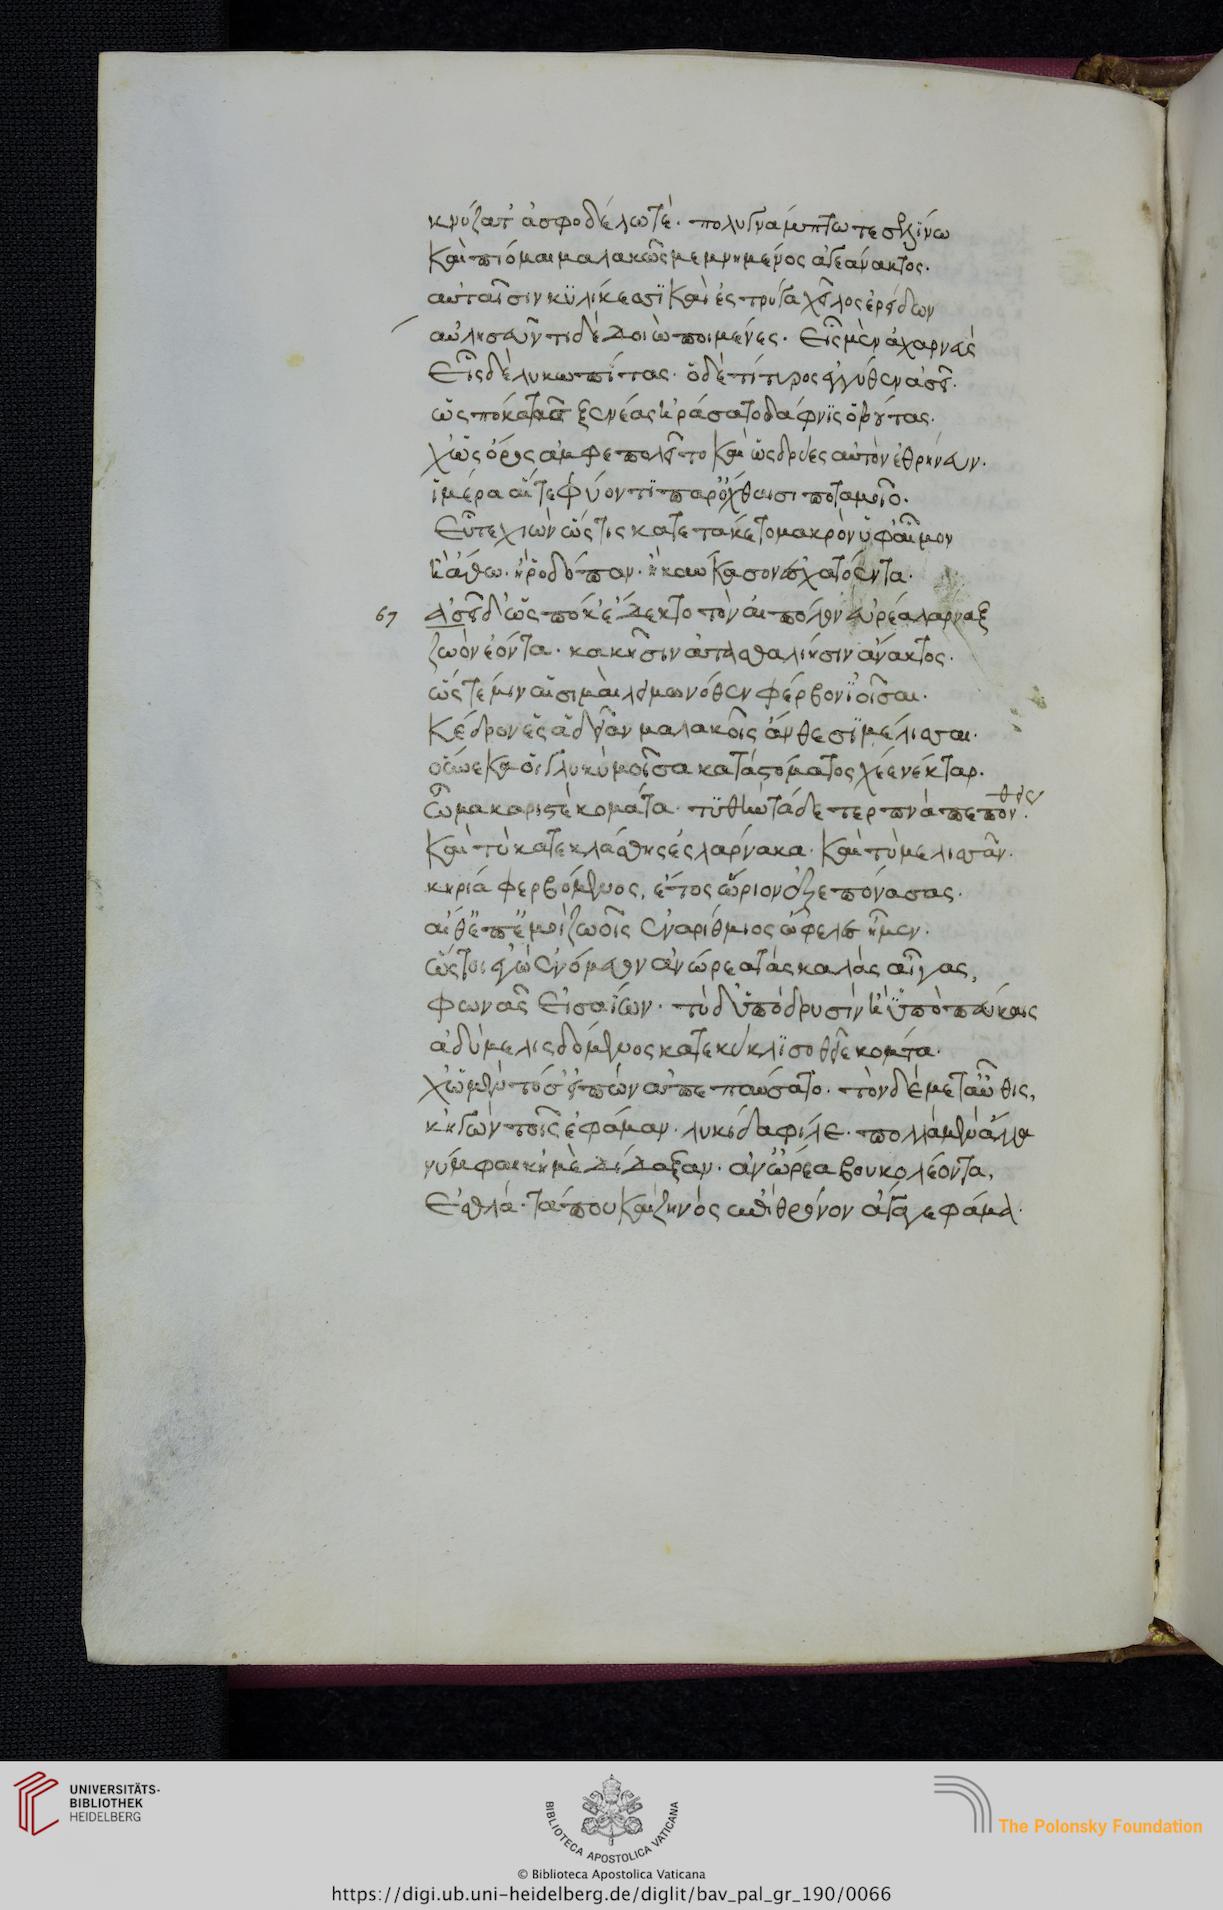 κνύζατ' ἀσφοδέλωτέ. πολυγνάμπτω τε σελίνω
καὶ πίομαι μαλακῶς μεμνημένος ἀγεάνακτος.
αὐταῖσιν κϋλίκεσϊ καὶ ἐς τρύγα χεῖλος ἐρείδων
αὐλησεῦντι δέ μοι δύω ποιμένες. εἷς μὲν ἀχαρνεὺς
εἷς δὲ λυκωπίτας. ὁ δὲ τίτυρος ἐγγύθεν ἀσεῖ.
ὥς ποκα τᾶς ξενέας ἠράσατο δάφνϊς ὁ βούτας.
χ' ὡς ὄρος ἀμφεπολεῖτο καὶ ὡς δρύες αὐτὸν ἐθρήνευν.
ἱμέρα αἵτε φύοντϊ παρ' ὄχθαισι ποταμοῖο.
εὖτε χιὼν ὥς τις κατετάκετο μακρὸν ὑφ' αἷμον
ἢ ἄθω. ἢ ῥοδόπαν. ἢ καύκασον ἐσχατόεντα.
67 ἀσεῖ δ' ὥς ποκ' ἔδεκτο τὸν αἰπόλον εὐρέα λάρναξ
ζωὸν ἐόντα. κακῆσιν ἀτασθαλίησιν ἄνακτος.
ὥς τέ μιν αἱ σιμαὶ λειμωνόθεν φέρβονϊ οἷσαι.
κέδρον ἐς ἀδεῖαν μαλακοῖς ἄνθεσϊ μέλισσαι.
οὕνεκά οἱ γλυκὺ μοῖσα κατὰ στόματος χέε νέκταρ.
ὦ μακαριστὲ κομάτα. τύ θην τάδε τερπνὰ πεπόνθεις.
καὶ τὺ κατεκλάσθης ἐς λάρνακα. καὶ τὺ μελισσᾶν.
κηρία φερβόμενος, ἔτος ὥριον ἐξεπόνασας.
αἴθ' ἐπ' ἐμοὶ ζωοῖς ἐναρίθμιος ὤφελες ἦμεν.
ὥς τοι ἐγὼν ἐνόμευον ἀν' ὤρεα τὰς καλὰς αἶγας,
φωνᾶς εἰσαΐων. τὺ δ' ὑπὸ δρυσὶν ἢ ὑπὸ πεύκαις
ἁδὺ μελισδόμενος κατεκέκλϊσο θεῖε κομάτα.
χ' ὡ μὲν τόσσ' εἰπὼν ἀπεπαύσατο. τὸν δὲ μετ' αὖθις,
κ' ἠγὼν τοῖς ἐφάμαν. λυκίδα φίλε. πολλὰ μὲν ἄλλα
νύμφαι κ' ἠμὲ δίδαξαν. ἀν' ὤρεα βουκολέοντα,
ἐσθλά. τά που καὶ ζηνὸς ἐπὶ θρόνον ἄγαγε φάμα.
UNIVERSITÄTS-
BIBLIOTHEK
HEIDELBERG
BIBLIOTECA APOSTOLICA VATICANA
© Biblioteca Apostolica Vaticana
The Polonsky Foundation
https://digi.ub.uni-heidelberg.de/diglit/bav_pal_gr_190/0066